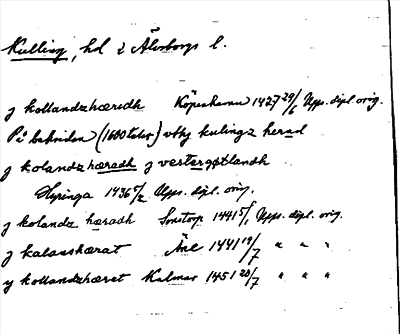 Kulling, hd i Älvsborgs l.
j kollandzhæredh Köpenhamn 1427 29/6 Upps. dipl. orig.
På baksidan (1600talet) vthj kulingz herad
j kolandzhæradh j vestergøtlandh
1436 5/2 Upps. dipl. orig.
j kolandz hæradh 1441 5/1 Upps. dipl. orig.
j kalanshærat Åne 1441 19/7 " " "
y kollandzhæret Kalmar 1451 20/7 " " "